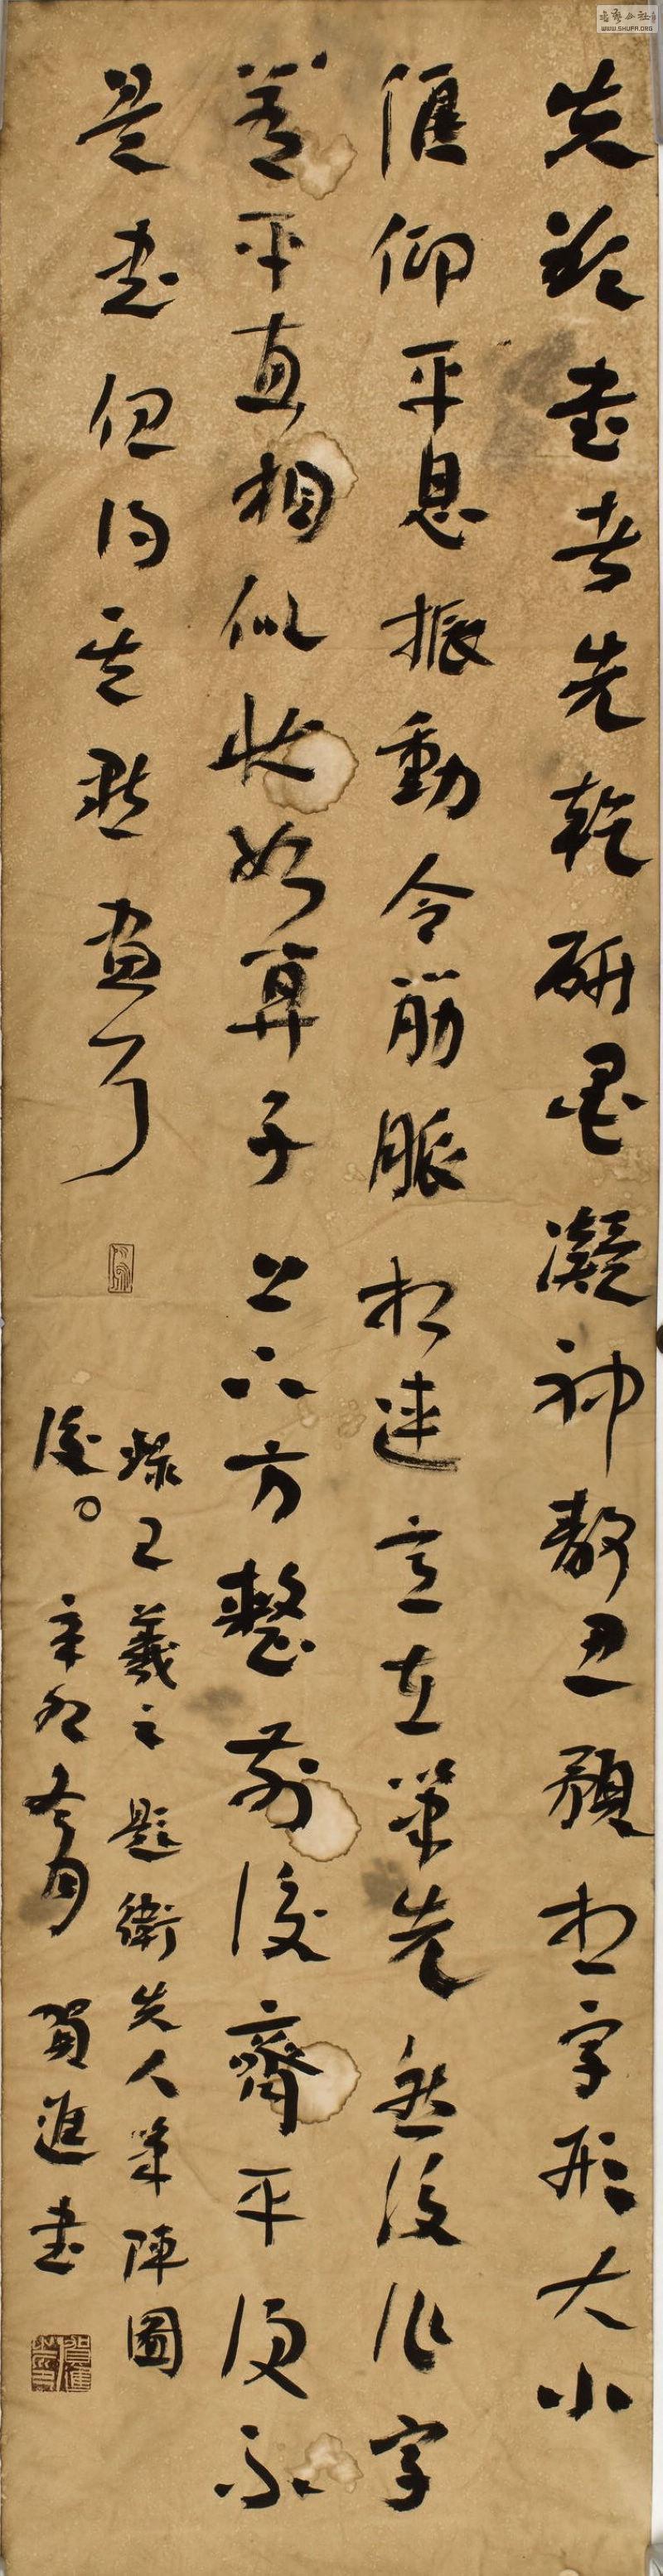 夫欲書者先乾研墨凝神靜思預想字形大小
偃仰平直振動令筋脈相連意在筆先然後作字
若平直相似狀如算子上下方整前後齊平便不
是書但得其點畫耳
錄王羲之題衛夫人筆陣圖
後。辛卯冬月賀進書
WWW.SHUFA.ORG